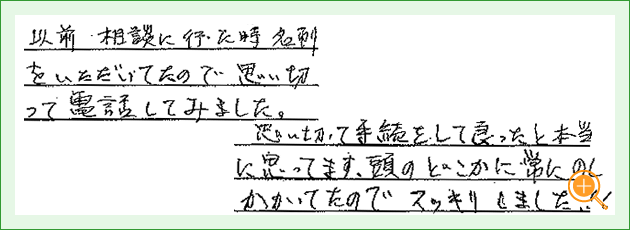 以前 相談に行った時 名刺
をいただいてたので 思い切
って電話してみました。
思い切って手続をして良ったと本当
に思ってます、頭のどこかに常にのし
かかいてたので スッキリしました!!